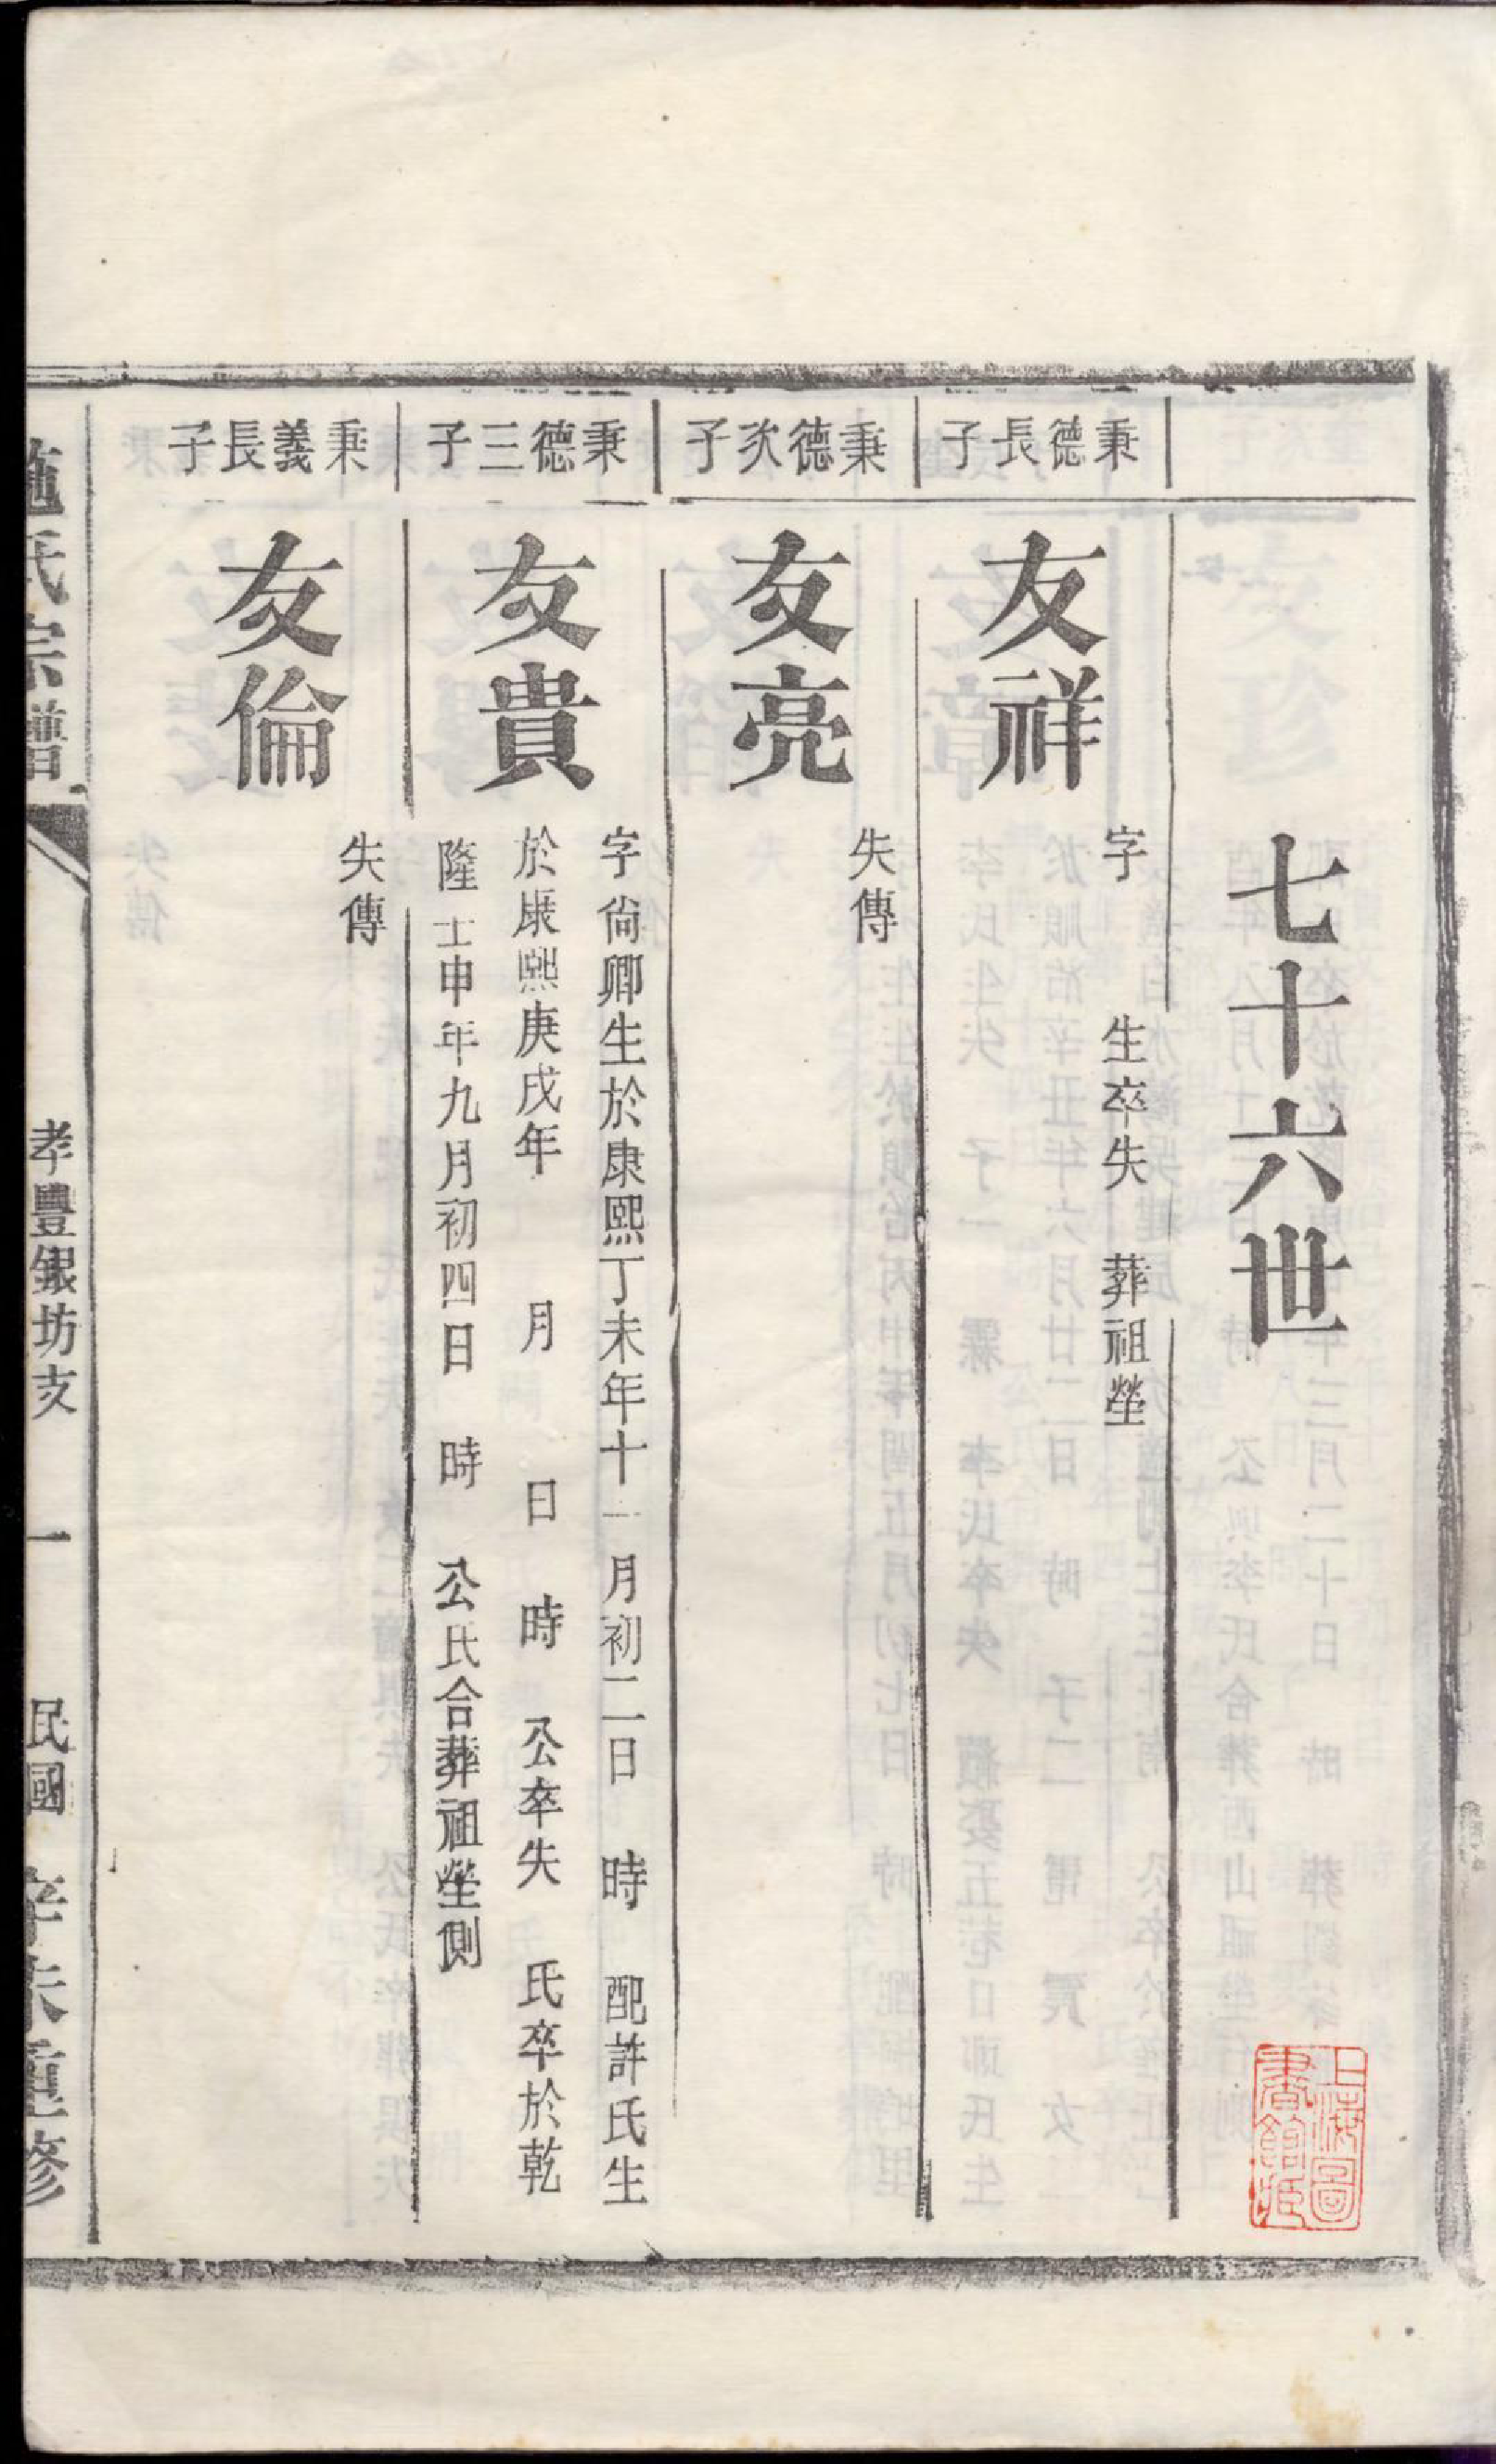 七十六世
秉德長子
友祥
字 生卒失 葬祖塋
秉德次子
友亮
失傳
秉德三子
友貴
字尙卿生於康熙丁未年十一月初二日 時 配許氏生
於康熙庚戌年 月 日 時 公卒失 氏卒於乾
隆壬申年九月初四日 時 公氏合葬祖塋側
秉義長子
友倫
失傳
施氏宗譜
孝豐銀坊支
一
民國
辛未重修
上海圖書館藏